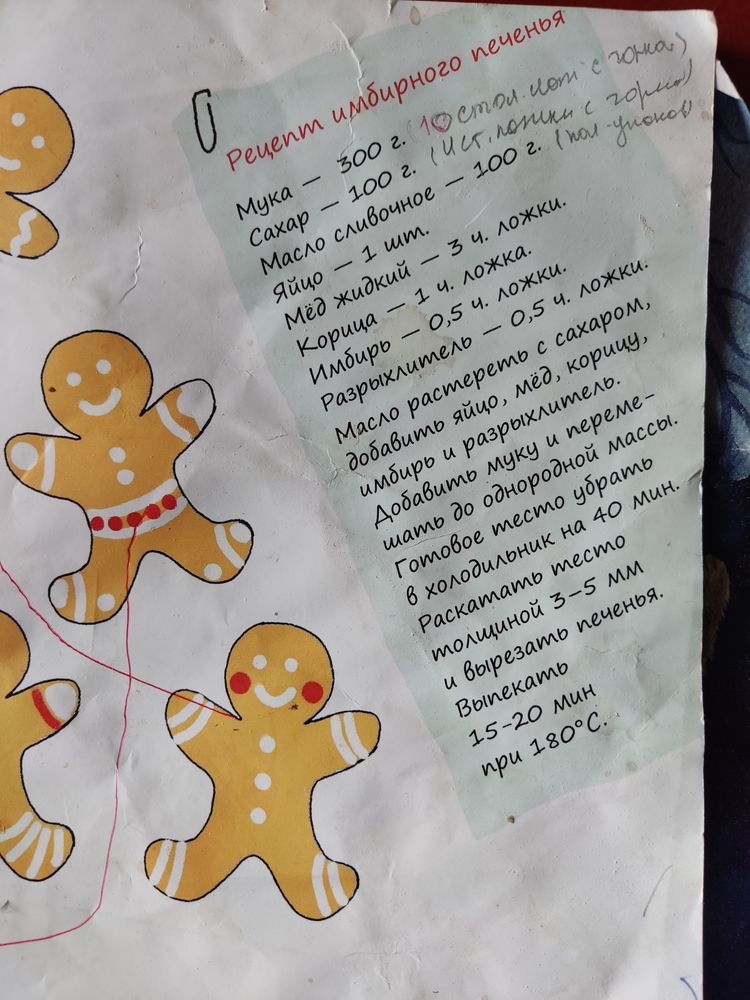 Рецепт имбирного печенья
Мука — 300 г. (10 стол. лож с горкой)
Сахар — 100 г. (4 ст. ложки с горкой)
Масло сливочное — 100 г. (пол-упаков)
Яйцо — 1 шт.
Мёд жидкий — 3 ч. ложки.
Корица — 1 ч. ложка.
Имбирь — 0,5 ч. ложки.
Разрыхлитель — 0,5 ч. ложки.
Масло растереть с сахаром,
добавить яйцо, мёд, корицу,
имбирь и разрыхлитель.
Добавить муку и переме-
шать до однородной массы.
Готовое тесто убрать
в холодильник на 40 мин.
Раскатать тесто
толщиной 3-5 мм
и вырезать печенья.
Выпекать
15-20 мин
при 180°С.